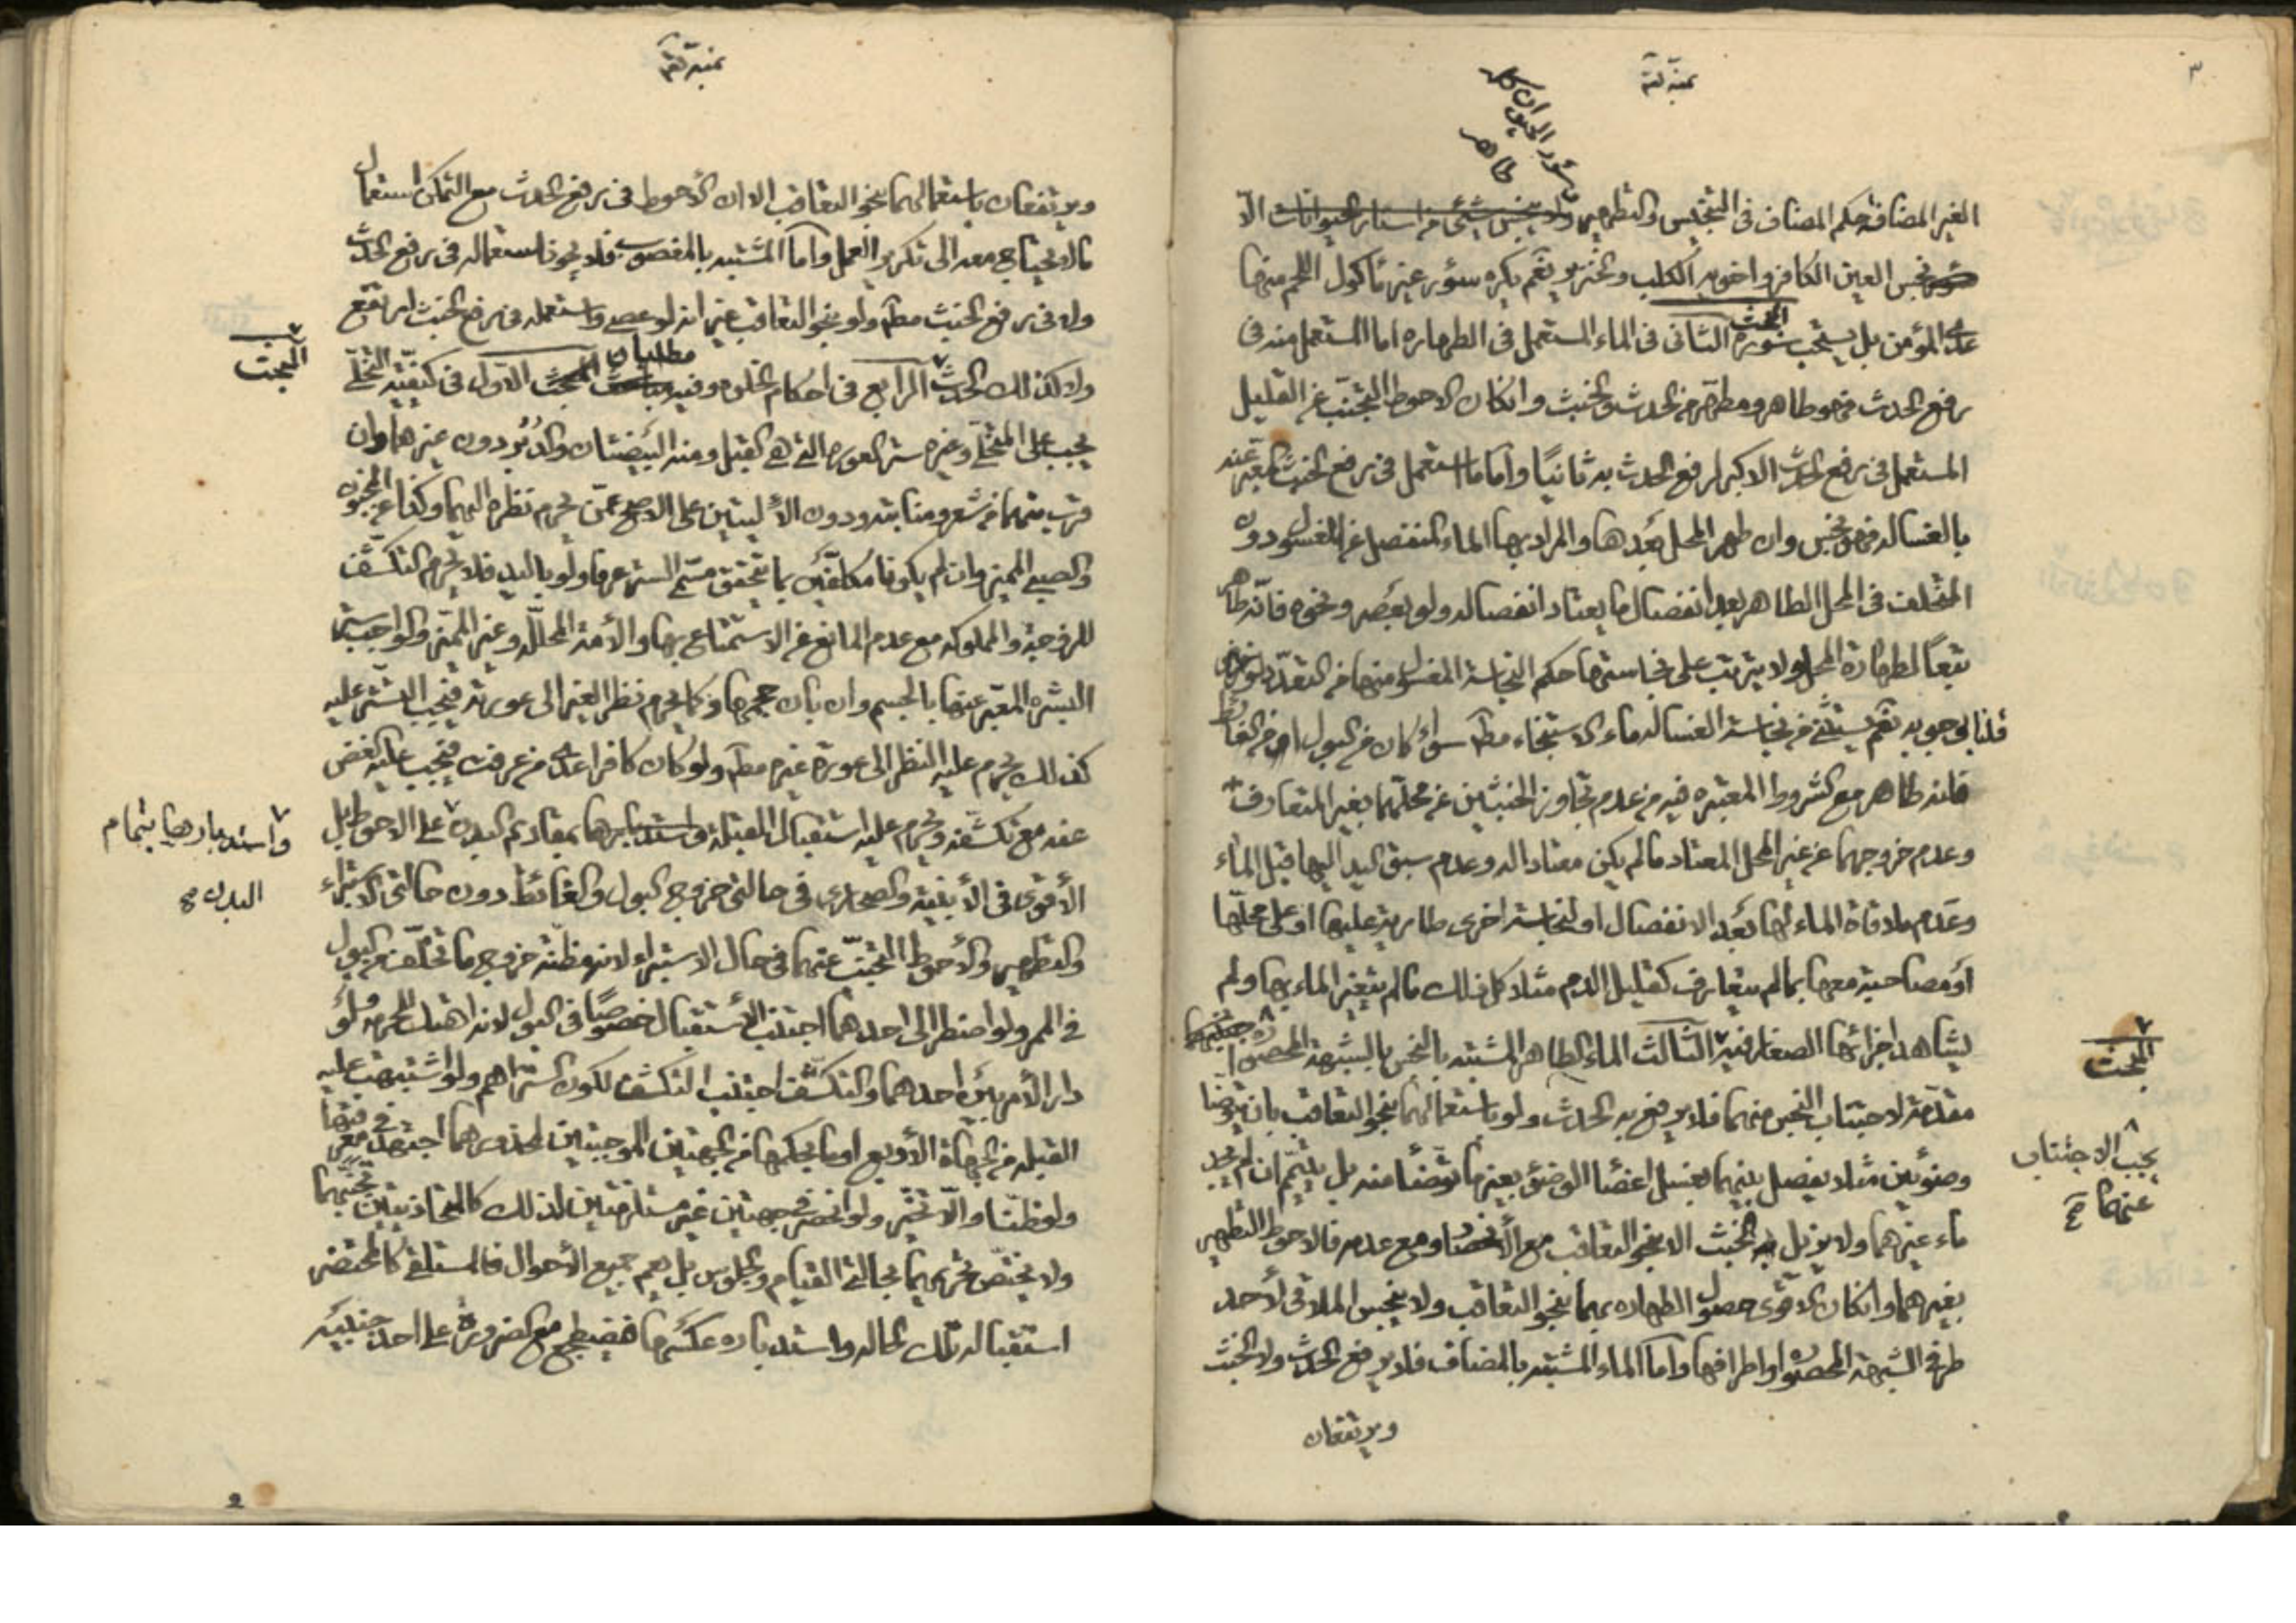 ٣
سؤر الحيوان كله
طاهر
الغير المضاف حكم المضاف في التنجيس والتطهير ولا ينجس شيئ من اسئار الحيوانات الّا
نجس العين الكافر واخويه الكلب والخنزير نعم يكره سؤر غير مأكول اللحم منها
عدى المؤمن بل يستحب سؤره المبحث الثانى فى الماء المستعمل فى الطهاره اما المستعمل منه فى
رفع الحدث فهو طاهر ومطهّر من الحدث والخبث وانكان الاحوط التجنّب عن القليل
المستعمل فى رفع الحدث الاكبر لرفع الحدث به ثانيًا وامّا ما استعمل فى رفع الخبث المعبّر عنه
بالغساله فهو نجس وان طهر المحل بَعْدها والمراد بها الماء المنفصل عن المغسول دون
المتخلف فى المحل الطاهر بعد انفصال ما يعتاد انفصاله ولو بعَصر ونحوه فانّه طاهر
تبعًا لطهارة المحل ولا يترتب على نجاستها حكم النجاسة المغسول منها من التعدّد
قلنا بوجوبه نعم يستثنى من نجاسة الغساله ماء الاستنجاء مطلقا سواء كان من البول او من الغائط
فانه طاهر مع الشروط المعتبره فيه من عدم تجاوز الخبثين عن محلّهما بغير المتعارف
وعدم خروجهما عن غير المحل المعتاد ما لم يكن معتادا له وعدم سبق اليد اليها قبل الماء
وعَدم ملاقاة الماء لها بَعْد الانفصال او لنجاسة اخرى طارية عليها او على محلّها
أو مصاحبة معها بما لم يتعارف كقليل الدم مثلا كل ذلك ما لم يتغير الماء بها ولم
يشاهد اجزائها الصغار فيه الثالث الماء الطاهر المشتبه بالنجس بالشبهة المحصوره
المبحث
مقدّمة لاجتناب النجس منهما فلا يرفع به الحدث ولو باستعمالهما بنحو التعاقب بان يتوضّا
يجب الاجتناب
عنهما صح
وضوئين مثلا يفصل بينهما بغسل اعضاء الوضوء بغير ما توضّأ منه بل يتيمّم ان لم يجد
ماء غيرهما ولا يزيل به الخبث الا بنحو التعاقب مع الأنحصار ومع عدمه فالاحوط التطهير
بغيرهما وانكان الاقوى حصول الطهاره بهما بنحو التعاقب ولا ينجس الملاقى لأحد
طرفى الشبهة المحصوره او اطرافها وامّا الماء المشتبه بالمضاف فلا يرفع الحدث ولا الخبث
ويرتفعان
ويرتفعان باستعمالهما بنحو التعاقب الا ان الأحوط فى رفع الحدث مع التمكن استعمال
ما لا يحتاج معه الى تكرير العمل وامّا المشتبه بالمغصوب فلا يجوز استعماله فى رفع الحدث
ولا فى رفع الخبث مطلقا ولو بنحو التعاقب غير انه لو عصى واستعمله فى رفع الخبث ارتفع
ولا كذلك الحدث الرابع فى احكام الخلوه وفيه مطلبان الاوّل فى كيفيّة التخلّى
المبحث
يجب على المتخلّى وغيره ستر العوره التى هى القبل ومنه البيضتان والدُبُر دون غيرهما وان
قرب منهما من شعر ومنابته ودون الأليتين على الاصح عمّن يحرم نظره اليهما وكذا عن المجنون
والصبى المميز وان لم يكونا مكلّفَين بما يتحقق مسمّى الستر عرفا ولو باليد فلا يحرم التكشّف
للزوجة والمملوكه مع عدم المانع من الاستمتاع بها والأمة المحلّله وغير المميّز والواجب ستر
البشره المعبّر عنها بالجسم وان بان حجمها وكما يحرم نظر الغير الى عورته فيجب التستّر عليه
كذلك يحرم عليه النظر الى عورة غيره مطلقا ولو كان كافرا عدى من عرفت فيجب عليه الغض
عنه مع تكشّفه ويحرم عليه استقبال القبلة واستدبارها بمقاديم البدن على الاحوط بل
واستدبارها بتمام
البدن صح
الأقوى فى الأبنية والصحارى فى حالتى خروج البول والغائط دون حالتى الاستبراء
والتطهير والأحوط التجنّب عنهما فى حال الاستبراء لانه مظنّة خروج ما تخلّف من البول
فى الممر ولو اضطر الى احدهما اجتنب الأستقبال خصوصًا فى البول لانه اهتك للحرمه ولو
دار الأمر بَيْن احدهما والتكشّف اجتنب التكشف لكون الستر اهم ولو اشتبهت عليه
القبله من الجهاة الأربع او ما بحكمها من الجهتين الموجبتين لمحذورهما اجتهد فى معرفتها
ولو ظنّا والّا تخيّر ولو انحصر فى جهتين غير مستلزمتين لذلك كالمتحاذيتين تجنّبهما
ولا يختصّ تحريمهما بحالتى القيام والجلوس بل يعم جميع الأحوال فالمستلقى كالمحتضر
استقباله تلك الحاله واستدباره عكسها فيضطجع مع الضروره على احد جنبيه